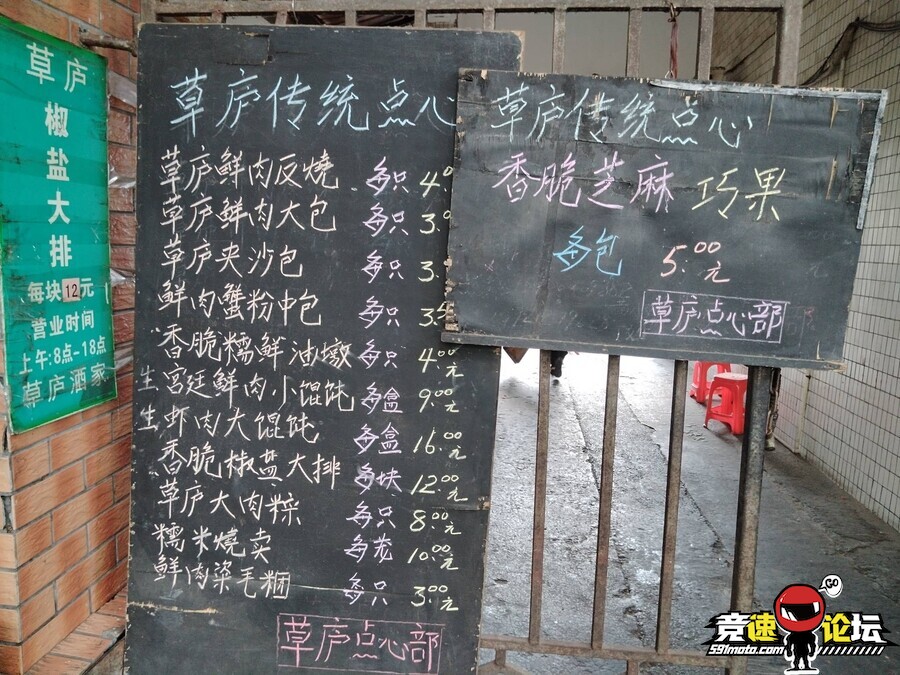 草庐
椒盐大排
每块12元
营业时间
上午:8点-18点
草庐酒家
草庐传统点心
草庐鲜肉反燒 每只 4.0
草庐鲜肉大包 每只 3.0
草庐夹沙包 每只 3.
鲜肉蟹粉中包 每只 3.5
香脆糯鲜油墩 每只 4.00元
生 宫廷鲜肉小馄饨 每盒 9.00元
生 虾肉大馄饨 每盒 16.00元
香脆椒盐大排 每块 12.00元
草庐大肉粽 每只 8.00元
糯米燒卖 每笼 10.00元
鲜肉染毛粿 每只 3.00元
草庐点心部
草庐传统点心
香脆芝麻巧果
每包 5.00元
草庐点心部
GO
竞速论坛
591moto.com